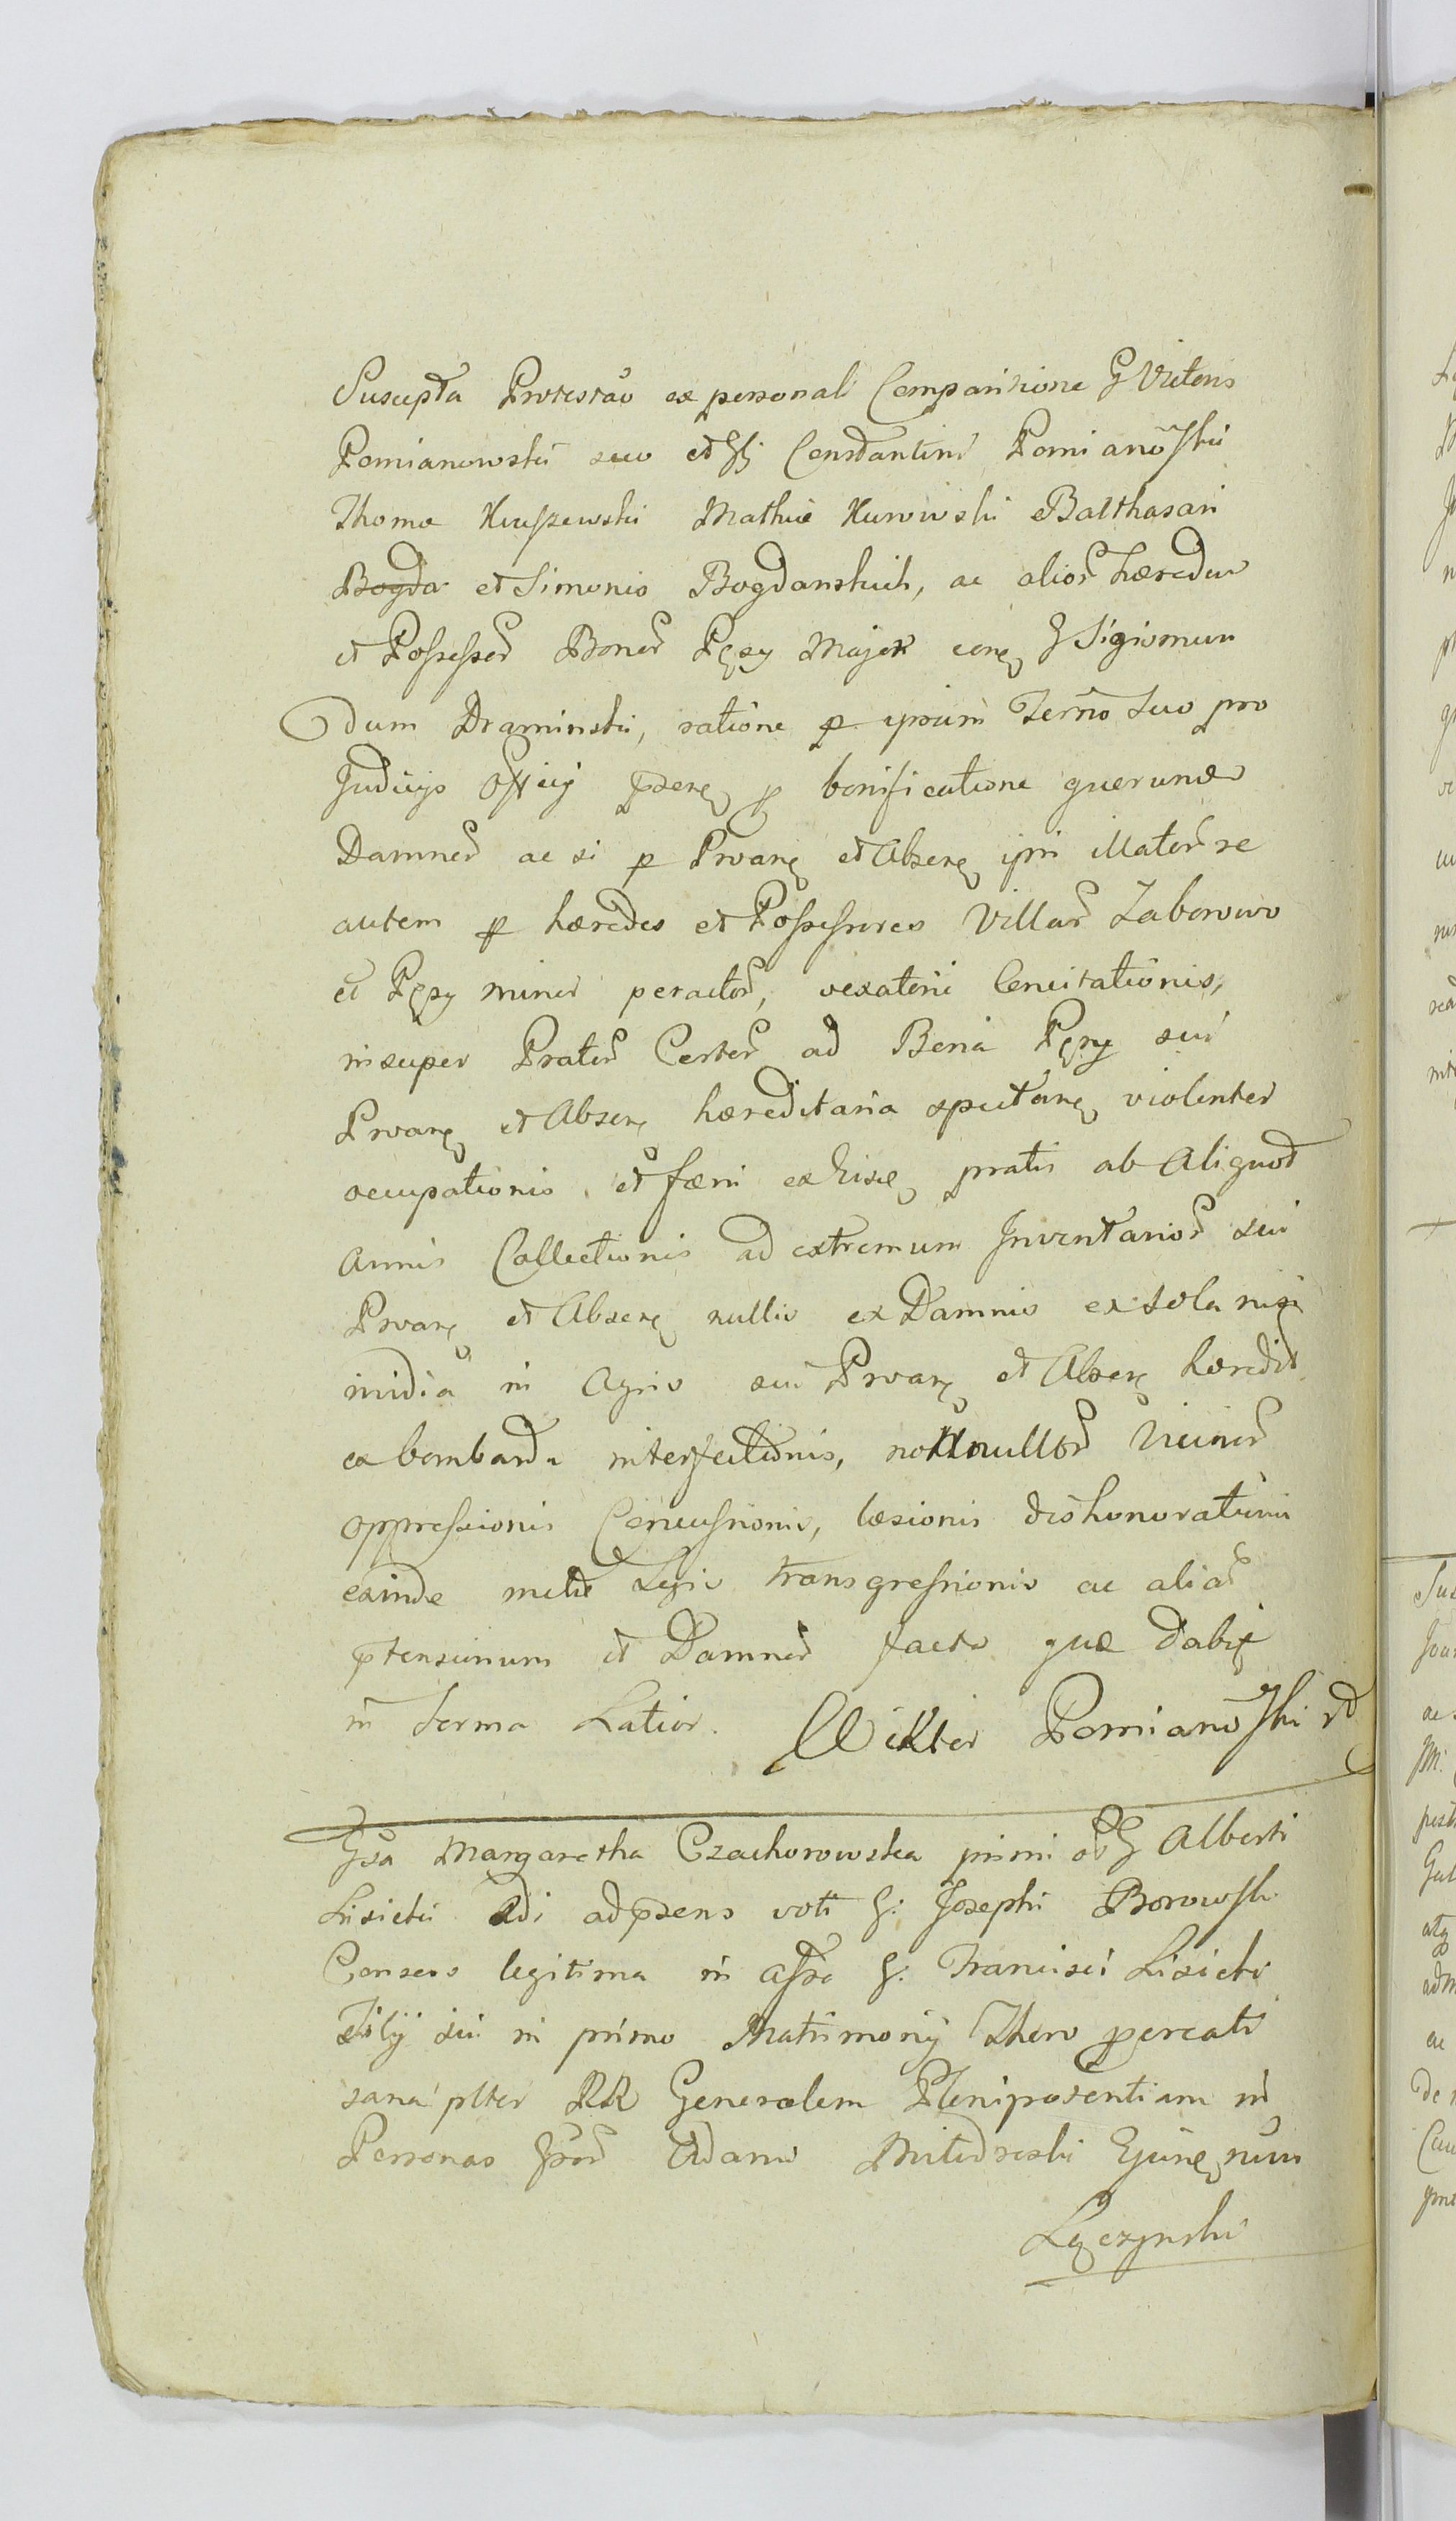 Suscepta Protestao ex personali Comparitione G Victoris
Pomianowski suo et G Constantini Pomianoski
Thomæ Kruszewski Mathiæ Kurowski Balthasari
Bogda et Simonis Bogdanskich, ac alior hæredum
et Possessor Bonor Pęzy Major con G Sigismun
dum Draminski, ratione p ipsum Termo suo pro
Judicijs Officij psen p bonificatione quorumd
Damnor ac si p Proan et Absen ipsi illator re
autem p hæredes et Possessores Villar Zaborowo
et Pęzy minor peractor, vexatoriæ Concitationis,
insuper Prator Certor ad Bona Pęzy sui
Proan et Absen hæreditaria spectan violenter
occupationis et fæni ex hisce pratis ab Aliquod
Annis Collectionis ad extremum Inventarior sui
Proan et Absen nullis ex Damnis ex sola
invidia in Agris sui Proan et Absen heredit
ex bombarda interfectionis, nonnullor Vicinor
oppressionis Concussionis, læsionis dishonorationis
exinde Legis transgressionis ac aliar
ptensionum et Damnor facta quæ dabit
in forma Latior. Wiktor Pomianoski
Gsa Margaretha Czachorowska primi olim G Alberti
Lisicki 2di ad psens voti G: Josephi Borowski
Consors legitima in assa G: Francisci Lisicki
Filij sui in primo Matrimonij Thoro pcreati
sana plter RR Generalem Plenipotentiam in
Personas Adami